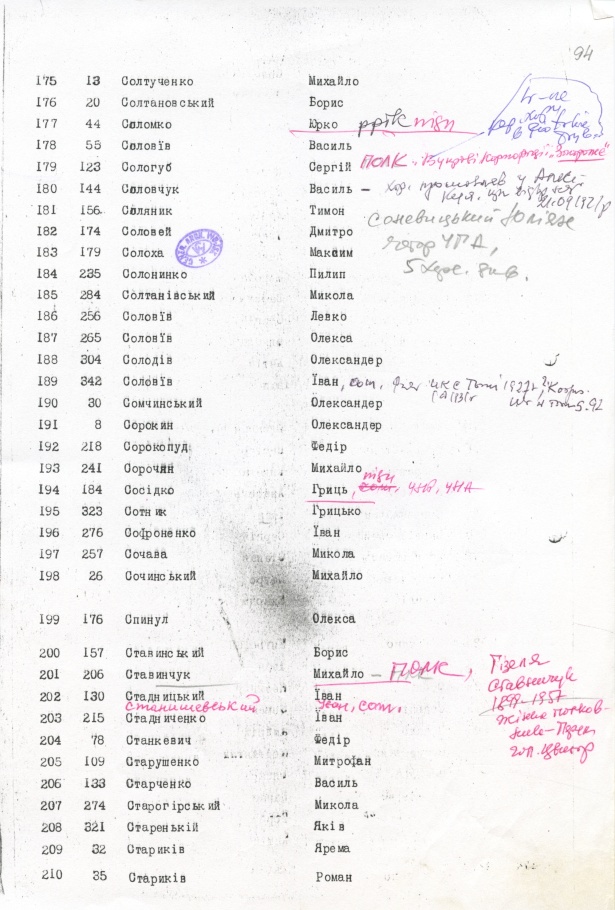 94
175 13 Солтученко Михайло
176 20 Солтановський Борис
177 44 Соломко Юрко
178 55 Соловїв Василь
179 123 Сологуб Сергій ПОЛК
180 144 Соловчук Василь –
181 156 Соляник Тимон
182 174 Соловей Дмитро
183 179 Солоха Максим
184 235 Солонинко Пилип
185 284 Солтанівський Микола
186 256 Соловїв Левко
187 265 Соловїв Олекса
188 304 Солодів Олександер
189 342 Соловїв Їван, сот,
190 30 Сомчинський Олександер
191 8 Сорокин Олександер
192 218 Сорокопуд Федір
193 241 Сорочян Михайло
194 184 Сосідко Гриць, УНР, УНА
195 323 Сотник Грицько
196 276 Софроненко Їван
197 257 Сочава Микола
198 26 Сочинський Михайло
199 176 Спинул Олекса
200 157 Ставинський Борис
201 206 Ставинчук Михайло – ПОЛК,
202 130 Стадницький Їван
Станишевський Їван, сот.
203 215 Стадниченко Їван
204 78 Станкевич Федір
205 109 Старушенко Митрофан
206 133 Старченко Василь
207 274 Старогірський Микола
208 321 Старенькій Яків
209 32 Стариків Ярема
210 35 Стариків Роман
Соневицький
УПА,
5 Херс. див.
Гізеля
Ставинчук
1899–1957